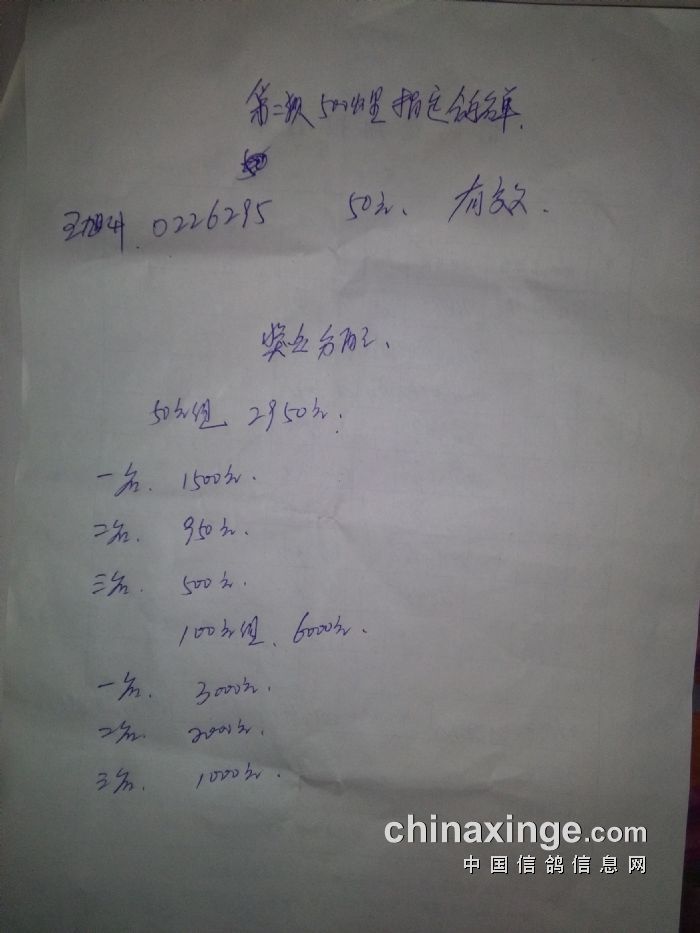 第二族 500公里指定鸽名单.
50
0226295 50元. 有效.
奖金分配.
50元组 2950元.
一名. 1500元.
二名. 950元.
三名. 500元.
100元组. 6000元.
一名. 3000元.
二名. 2000元.
三名. 1000元.
chinaxinge.com
中国信鸽信息网